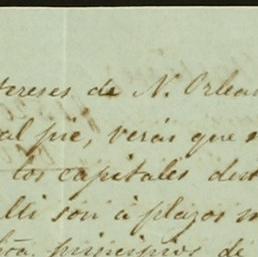 tereses de N. Orlea
al pie, verás que s
los capitales den
lli son á plazos m
principios de